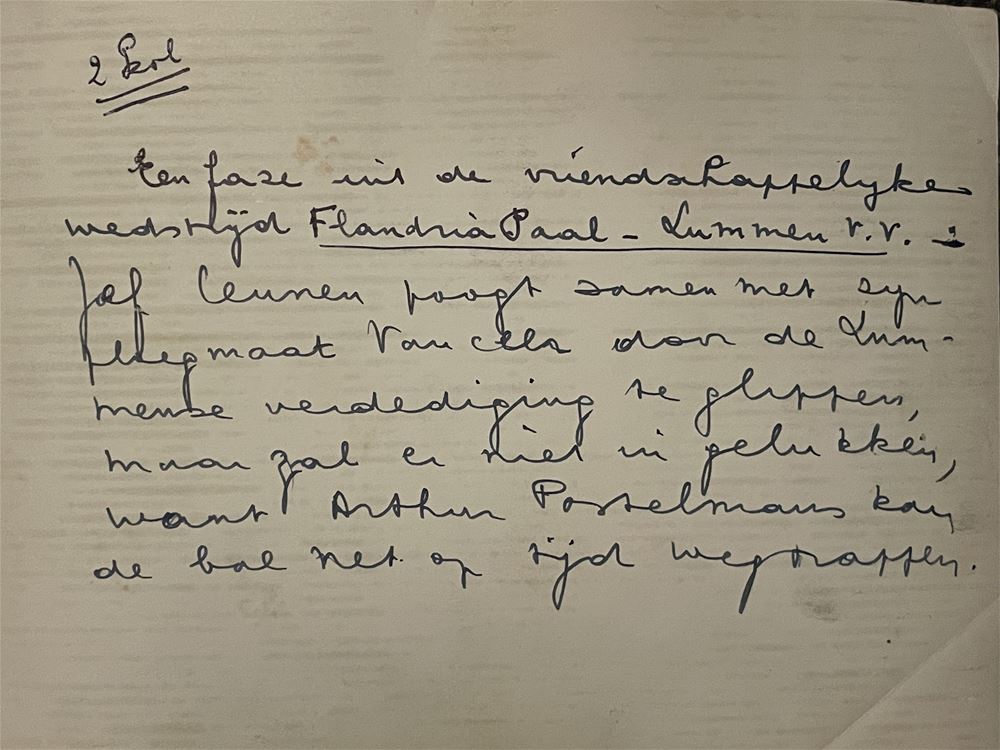 2 kol
Een faze uit de vriendschappelyke
wedstrijd Flandria Paal - Lummen V.V. :
Jef Leunen poogt samen met zyn
ploegmaat Van Cele door de Lum-
mense verdediging te glippen,
maar zal er niet in gelukken,
want Arthur Postelmans kan
de bal net op tijd wegtrappen.